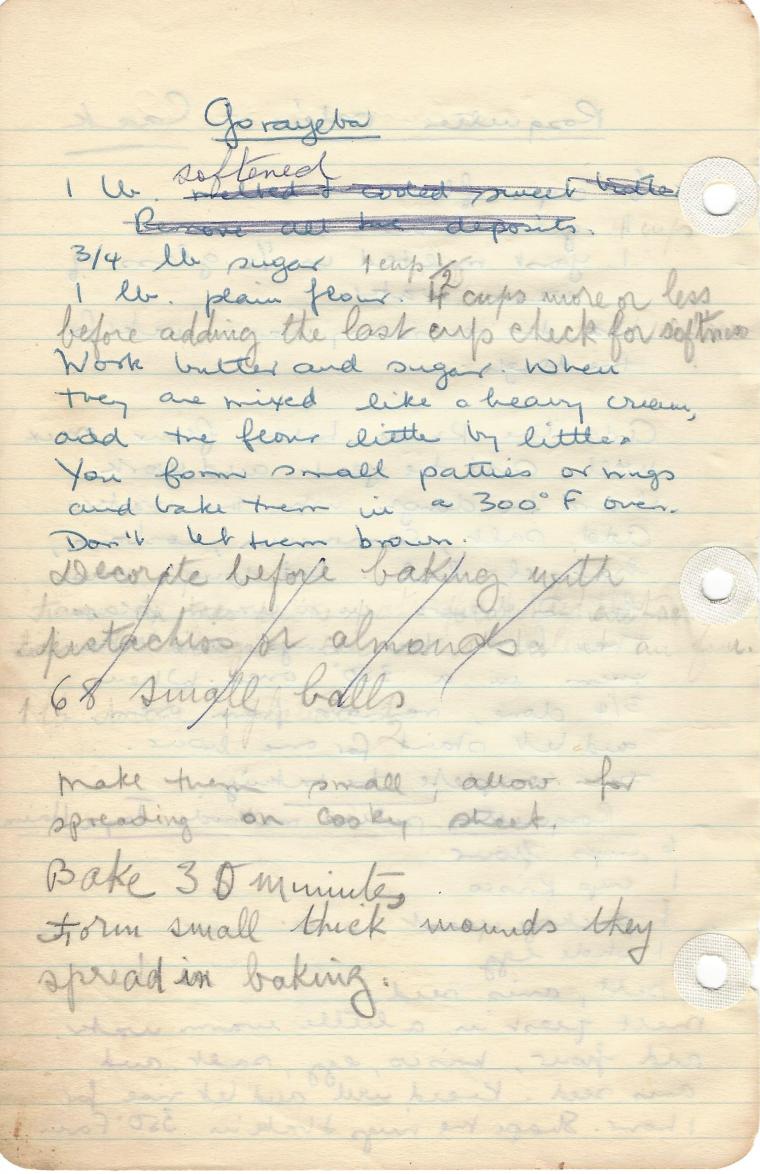 Gorayeba
softened
1 lb. melted & cooled sweet butter
Remove all the deposits.
3/4 lb sugar 1 cup
1 lb. plain flour. 4 1/2 cups more or less
before adding the last cup check for softness
Work butter and sugar. When
they are mixed like a heavy cream,
add the flour little by little.
You form small patties or rings
and bake them in a 300° F oven.
Don't let them brown.
Decorate before baking with
pistachios or almonds
68 small balls
Make them small, allow for
spreading on cooky sheet.
Bake 30 minutes
Form small thick mounds they
spread in baking.